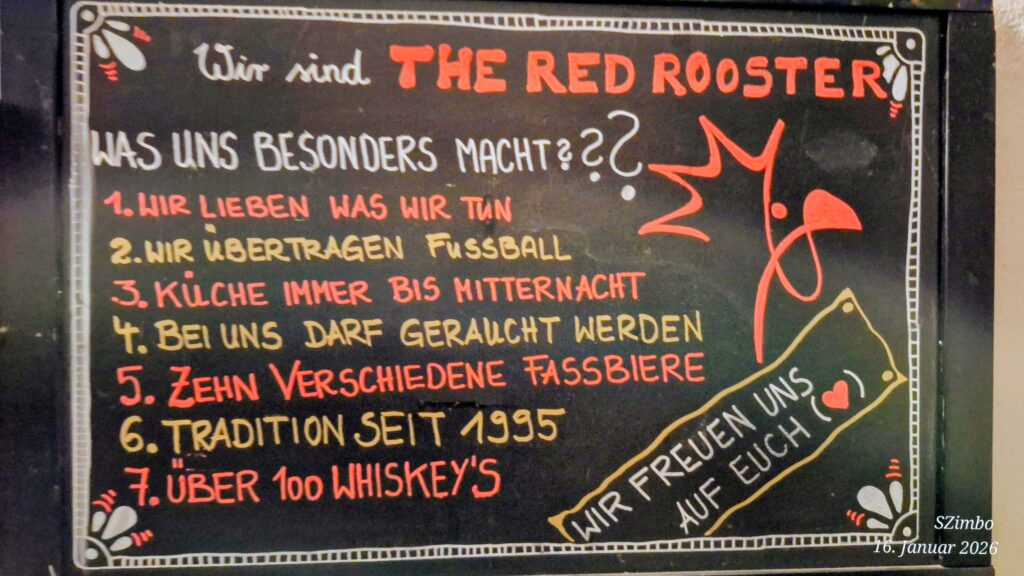 Wir sind THE RED ROOSTER
WAS UNS BESONDERS MACHT???
1. WIR LIEBEN WAS WIR TUN
2. WIR ÜBERTRAGEN FUSSBALL
3. KÜCHE IMMER BIS MITTERNACHT
4. BEI UNS DARF GERAUCHT WERDEN
5. ZEHN VERSCHIEDENE FASSBIERE
6. TRADITION SEIT 1995
7. ÜBER 100 WHISKEY'S
WIR FREUEN UNS
AUF EUCH (♥)
SZimbo
16. Januar 2026